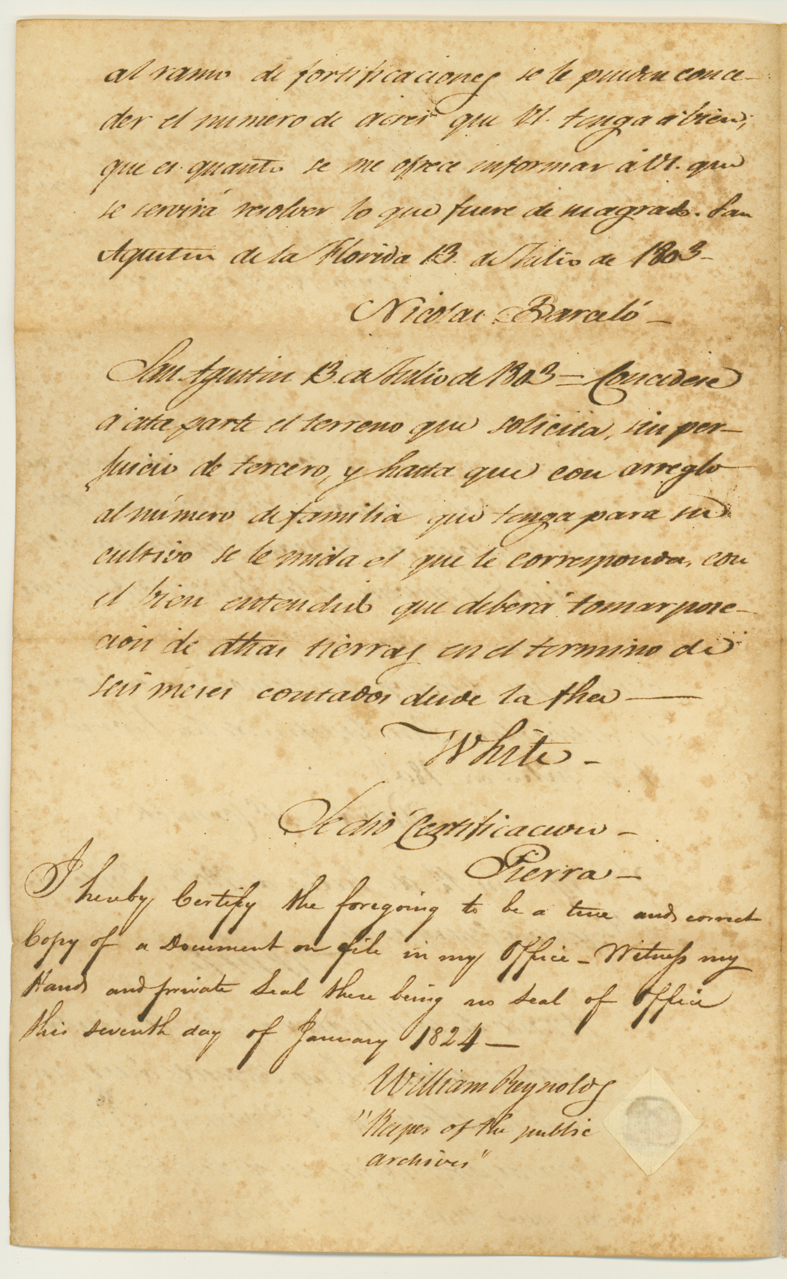 al ramo de fortificaciones se le pueden conce-
der el numero de acres que VS. tenga à bien,
que es quanto se me ofrece informar à VS. que
se servirá resolver lo que fuere de su agrado. San
Agustin de la Florida 13 de Julio de 1803-
Nicolas Barceló-
San Agustin 13 de Julio de 1803- Concedese
à esta parte el terreno que solicita, sin per-
juicio de tercero, y hasta que con arreglo
al número de familia que tenga para su
cultivo se le mida el que le corresponda, con
el bien entendido que deberá tomar pose-
cion de dhas tierras en el termino de
seis meses contados desde la fha-
White-
Se dió Certificacion-
Pierra-
I hereby Certify the foregoing to be a true and correct
Copy of a Document on file in my Office- Witness my
Hand and private Seal there being no Seal of Office
this seventh day of January 1824-
William Reynolds
"Keeper of the public
archives"